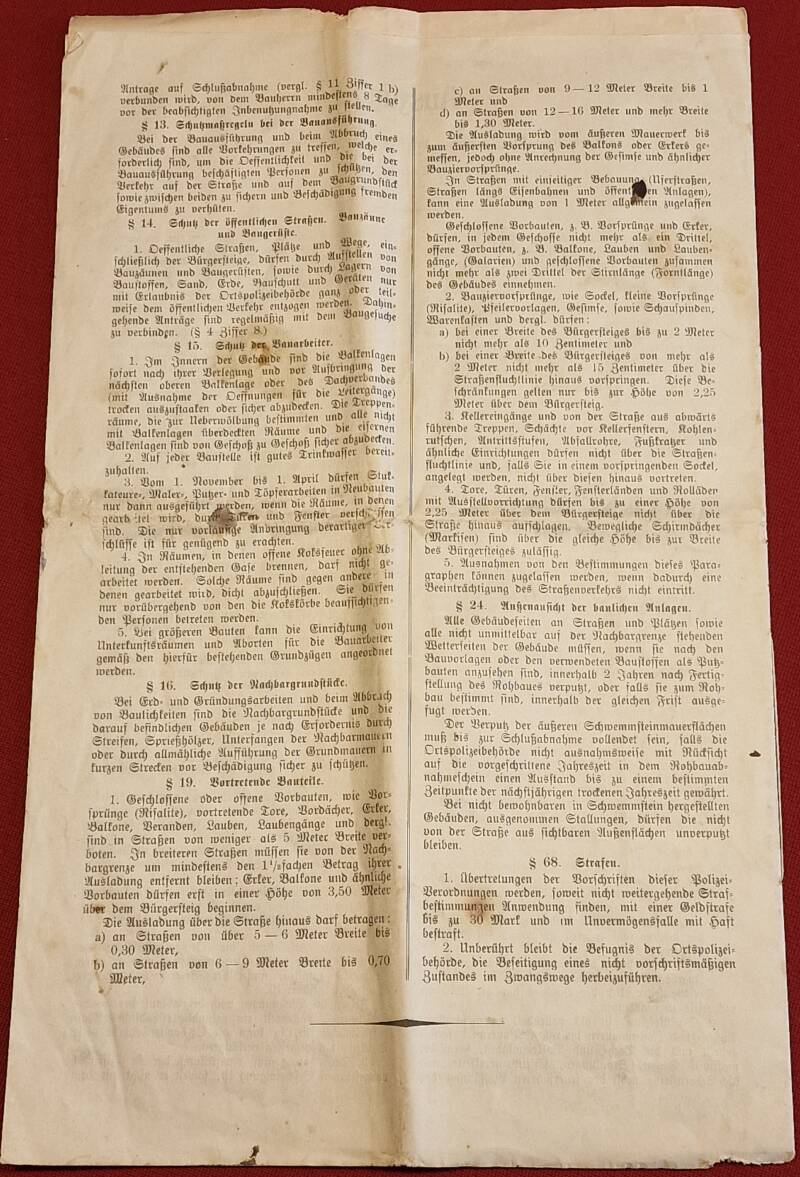 Antrage auf Schlußabnahme (vergl. § 11 Ziffer 1 b)
verbunden wird, von dem Bauherrn mindestens 8 Tage
vor der beabsichtigten Inbenutzungnahme zu stellen.
§ 13. Schutzmaßregeln bei der Bauausführung.
Bei der Bauausführung und beim Abbruch eines
Gebäudes sind alle Vorkehrungen zu treffen, welche er-
forderlich sind, um die Oeffentlichkeit und die bei der
Bauausführung beschäftigten Personen zu schützen, den
Verkehr auf der Straße und auf dem Baugrundstück
sowie zwischen beiden zu sichern und Beschädigung fremden
Eigentums zu verhüten.
§ 14. Schutz der öffentlichen Straßen. Bauzäune
und Baugerüste.
1. Oeffentliche Straßen, Plätze und Wege, ein-
schließlich der Bürgersteige, dürfen durch Aufstellen von
Bauzäunen und Baugerüsten, sowie durch Lagern von
Baustoffen, Sand, Erde, Bauschutt und Geräten nur
mit Erlaubnis der Ortspolizeibehörde ganz oder teil-
weise dem öffentlichen Verkehr entzogen werden. Dahin-
gehende Anträge sind regelmäßig mit dem Baugesuche
zu verbinden. (§ 4 Ziffer 8.)
§ 15. Schutz der Bauarbeiter.
1. Im Innern der Gebäude sind die Balkenlagen
sofort nach ihrer Verlegung und vor Aufbringung der
nächsten oberen Balkenlage oder des Dachverbandes
(mit Ausnahme der Oeffnungen für die Leitergänge)
trocken auszustaaken oder sicher abzudecken. Die Treppen-
räume, die zur Ueberwölbung bestimmten und alle nicht
mit Balkenlagen überdeckten Räume und die eisernen
Balkenlagen sind von Geschoß zu Geschoß sicher abzudecken.
2. Auf jeder Baustelle ist gutes Trinkwasser bereit-
zuhalten.
3. Vom 1. November bis 1. April dürfen Stuk-
kateure-, Maler-, Putzer- und Töpferarbeiten in Neubauten
nur dann ausgeführt werden, wenn die Räume, in denen
gearbeitet wird, durch Türen und Fenster verschlossen
sind. Die nur vorläufige Anbringung derartiger Ver-
schlüsse ist für genügend zu erachten.
4. In Räumen, in denen offene Koksfeuer ohne Ab-
leitung der entstehenden Gase brennen, darf nicht ge-
arbeitet werden. Solche Räume sind gegen andere in
denen gearbeitet wird, dicht abzuschließen. Sie dürfen
nur vorübergehend von den die Kokskörbe beaufsichtigen-
den Personen betreten werden.
5. Bei größeren Bauten kann die Einrichtung von
Unterkunftsräumen und Aborten für die Bauarbeiter
gemäß den hierfür bestehenden Grundzügen angeordnet
werden.
§ 16. Schutz der Nachbargrundstücke.
Bei Erd- und Gründungsarbeiten und beim Abbruch
von Baulichkeiten sind die Nachbargrundstücke und die
darauf befindlichen Gebäude je nach Erfordernis durch
Streifen, Sprießhölzer, Unterfangen der Nachbarmauern
oder durch allmähliche Aufführung der Grundmauern in
kurzen Strecken vor Beschädigung sicher zu schützen.
§ 19. Vortretende Bauteile.
1. Geschlossene oder offene Vorbauten, wie Vor-
sprünge (Risalite), vortretende Tore, Vordächer, Erker,
Balkone, Veranden, Lauben, Laubengänge und dergl.
sind in Straßen von weniger als 5 Meter Breite ver-
boten. In breiteren Straßen müssen sie von der Nach-
bargrenze um mindestens den 1¹/₂fachen Betrag ihrer
Ausladung entfernt bleiben; Erker, Balkone und ähnliche
Vorbauten dürfen erst in einer Höhe von 3,50 Meter
über dem Bürgersteig beginnen.
Die Ausladung über die Straße hinaus darf betragen:
a) an Straßen von über 5 — 6 Meter Breite bis
0,30 Meter,
b) an Straßen von 6 — 9 Meter Breite bis 0,70
Meter,
c) an Straßen von 9 — 12 Meter Breite bis 1
Meter und
d) an Straßen von 12 — 16 Meter und mehr Breite
bis 1,30 Meter.
Die Ausladung wird vom äußeren Mauerwerk bis
zum äußersten Vorsprung des Balkons oder Erkers ge-
messen, jedoch ohne Anrechnung der Gesimse und ähnlicher
Bauziervorsprünge.
In Straßen mit einseitiger Bebauung (Uferstraßen,
Straßen längs Eisenbahnen und öffentlichen Anlagen),
kann eine Ausladung von 1 Meter allgemein zugelassen
werden.
Geschlossene Vorbauten, z. B. Vorsprünge und Erker,
dürfen, in jedem Geschosse nicht mehr als ein Drittel,
offene Vorbauten, z. B. Balkone, Lauben und Lauben-
gänge, (Galarien) und geschlossene Vorbauten zusammen
nicht mehr als zwei Drittel der Stirnlänge (Forntlänge)
des Gebäudes einnehmen.
2. Bauziervorsprünge, wie Sockel, kleine Vorsprünge
(Risalite), Pfeilervorlagen, Gesimse, sowie Schauspinden,
Warenkasten und dergl. dürfen:
a) bei einer Breite des Bürgersteiges bis zu 2 Meter
nicht mehr als 10 Zentimeter und
b) bei einer Breite des Bürgersteiges von mehr als
2 Meter nicht mehr als 15 Zentimeter über die
Straßenfluchtlinie hinaus vorspringen. Diese Be-
schränkungen gelten nur bis zur Höhe von 2,25
Meter über dem Bürgersteig.
3. Kellereingänge und von der Straße aus abwärts
führende Treppen, Schächte vor Kellerfenstern, Kohlen-
rutschen, Antrittsstufen, Abfallrohre, Fußkratzer und
ähnliche Einrichtungen dürfen nicht über die Straßen-
fluchtlinie und, falls Sie in einem vorspringenden Sockel,
angelegt werden, nicht über diesen hinaus vortreten.
4. Tore, Türen, Fenster, Fensterländen und Rolläden
mit Ausstellvorrichtung dürfen bis zu einer Höhe von
2,25 Meter über dem Bürgersteige nicht über die
Straße hinaus aufschlagen. Bewegliche Schirmdächer
(Markisen) sind über die gleiche Höhe bis zur Breite
des Bürgersteiges zulässig.
5. Ausnahmen von den Bestimmungen dieses Para-
graphen können zugelassen werden, wenn dadurch eine
Beeinträchtigung des Straßenverkehrs nicht eintritt.
§ 24. Außenansicht der baulichen Anlagen.
Alle Gebäudeseiten an Straßen und Plätzen sowie
alle nicht unmittelbar auf der Nachbargrenze stehenden
Wetterseiten der Gebäude müssen, wenn sie nach den
Bauvorlagen oder den verwendeten Baustoffen als Putz-
bauten anzusehen sind, innerhalb 2 Jahren nach Fertig-
stellung des Rohbaues verputzt, oder falls sie zum Roh-
bau bestimmt sind, innerhalb der gleichen Frist ausge-
fugt werden.
Der Verputz der äußeren Schwemmsteinmauerflächen
muß bis zur Schlußabnahme vollendet sein, falls die
Ortspolizeibehörde nicht ausnahmsweise mit Rücksicht
auf die vorgeschrittene Jahreszeit in dem Rohbauab-
nahmeschein einen Ausstand bis zu einem bestimmten
Zeitpunkte der nächstjährigen trockenen Jahreszeit gewährt.
Bei nicht bewohnbaren in Schwemmstein hergestellten
Gebäuden, ausgenommen Stallungen, dürfen die nicht
von der Straße aus sichtbaren Außenflächen unverputzt
bleiben.
§ 68. Strafen.
1. Übertretungen der Vorschriften dieser Polizei-
Verordnungen werden, soweit nicht weitergehende Straf-
bestimmungen Anwendung finden, mit einer Geldstrafe
bis zu 30 Mark und im Unvermögensfalle mit Haft
bestraft.
2. Unberührt bleibt die Befugnis der Ortspolizei-
behörde, die Beseitigung eines nicht vorschriftsmäßigen
Zustandes im Zwangswege herbeizuführen.